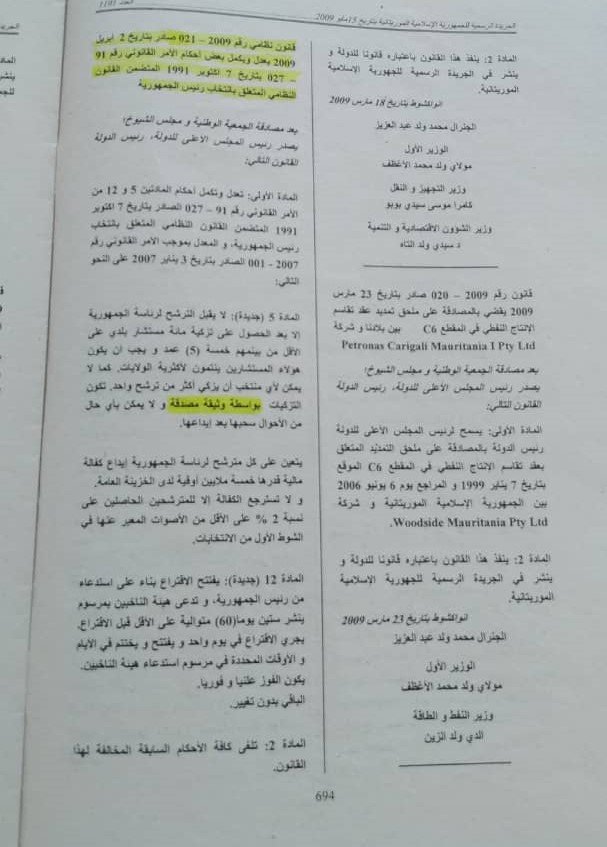 الجريدة الرسمية للجمهورية الإسلامية الموريتانية بتاريخ 15 مايو 2009
العدد 1191
المادة 2: ينفذ هذا القانون باعتباره قانونا للدولة و
ينشر في الجريدة الرسمية للجهورية الإسلامية
الموريتانية.
انواكشوط بتاريخ 18 مارس 2009
الجنرال محمد ولد عبد العزيز
الوزير الأول
مولاي ولد محمد الأغظف
وزير التجهيز و النقل
كامرا موسى سيدي بوبو
وزير الشؤون الاقتصادية و التنمية
د سيدي ولد التاه
قانون رقم 2009 – 020 صادر بتاريخ 23 مارس
2009 يقضي بالمصادقة على ملحق تمديد عقد تقاسم
الانتاج النفطي في المقطع C6 بين بلادنا و شركة
Petronas Carigali Mauritania I Pty Ltd
بعد مصادقة الجمعية الوطنية و مجلس الشيوخ؛
يصدر رئيس المجلس الأعلى للدولة، رئيس الدولة
القانون التالي:
المادة الأولى: يسمح لرئيس المجلس الأعلى للدولة
رئيس الدولة بالمصادقة على ملحق التمديد المتعلق
بعقد تقاسم الإنتاج النفطي في المقطع C6 الموقع
بتاريخ 7 يناير 1999 و المراجع يوم 6 يونيو 2006
بين الجمهورية الإسلامية الموريتانية و شركة
Woodside Mauritania Pty Ltd.
المادة 2: ينفذ هذا القانون باعتباره قانونا للدولة و
ينشر في الجريدة الرسمية للجهورية الإسلامية
الموريتانية.
انواكشوط بتاريخ 23 مارس 2009
الجنرال محمد ولد عبد العزيز
الوزير الأول
مولاي ولد محمد الأغظف
وزير النفط و الطاقة
الدي ولد الزين
قانون نظامي رقم 2009 – 021 صادر بتاريخ 2 إبريل
2009 يعدل ويكمل بعض أحكام الأمر القانوني رقم 91
– 027 بتاريخ 7 اكتوبر 1991 المتضمن القانون
النظامي المتعلق بانتخاب رئيس الجمهورية
بعد مصادقة الجمعية الوطنية و مجلس الشيوخ؛
يصدر رئيس المجلس الأعلى للدولة، رئيس الدولة
القانون التالي:
المادة الأولى: تعدل وتكمل أحكام المادتين 5 و 12 من
الأمر القانوني رقم 91 – 027 الصادر بتاريخ 7 اكتوبر
1991 المتضمن القانون النظامي المتعلق بانتخاب
رئيس الجمهورية، و المعدل بموجب الأمر القانوني رقم
2007 - 001 الصادر بتاريخ 3 يناير 2007 على النحو
التالي:
المادة 5 (جديدة): لا يقبل الترشح لرئاسة الجمهورية
إلا بعد الحصول على تزكية مائة مستشار بلدي على
الأقل من بينهم خمسة (5) عمد و يجب ان يكون
هؤلاء المستشارين ينتمون لأكثرية الولايات. كما لا
يمكن لأي منتخب أن يزكي أكثر من ترشح واحد. تكون
التزكيات بواسطة وثيقة مصدقة و لا يمكن بأي حال
من الأحوال سحبها بعد إيداعها.
يتعين على كل مترشح لرئاسة الجمهورية إيداع كفالة
مالية قدرها خمسة ملايين أوقية لدى الخزينة العامة.
و لا تسترجع الكفالة إلا للمترشحين الحاصلين على
نسبة 2 % على الأقل من الأصوات المعبر عنها في
الشوط الأول من الانتخابات.
المادة 12 (جديدة): يفتتح الاقتراع بناء على استدعاء
من رئيس الجمهورية، و تدعى هيئة الناخبين بمرسوم
ينشر ستين يوما(60) متوالية على الأقل قبل الاقتراع.
يجري الاقتراع في يوم واحد و يفتتح و يختتم في الأيام
و الأوقات المحددة في مرسوم استدعاء هيئة الناخبين.
يكون الفوز علنيا و فوريا.
الباقي بدون تغيير.
المادة 2: تلغى كافة الأحكام السابقة المخالفة لهذا
القانون.
694